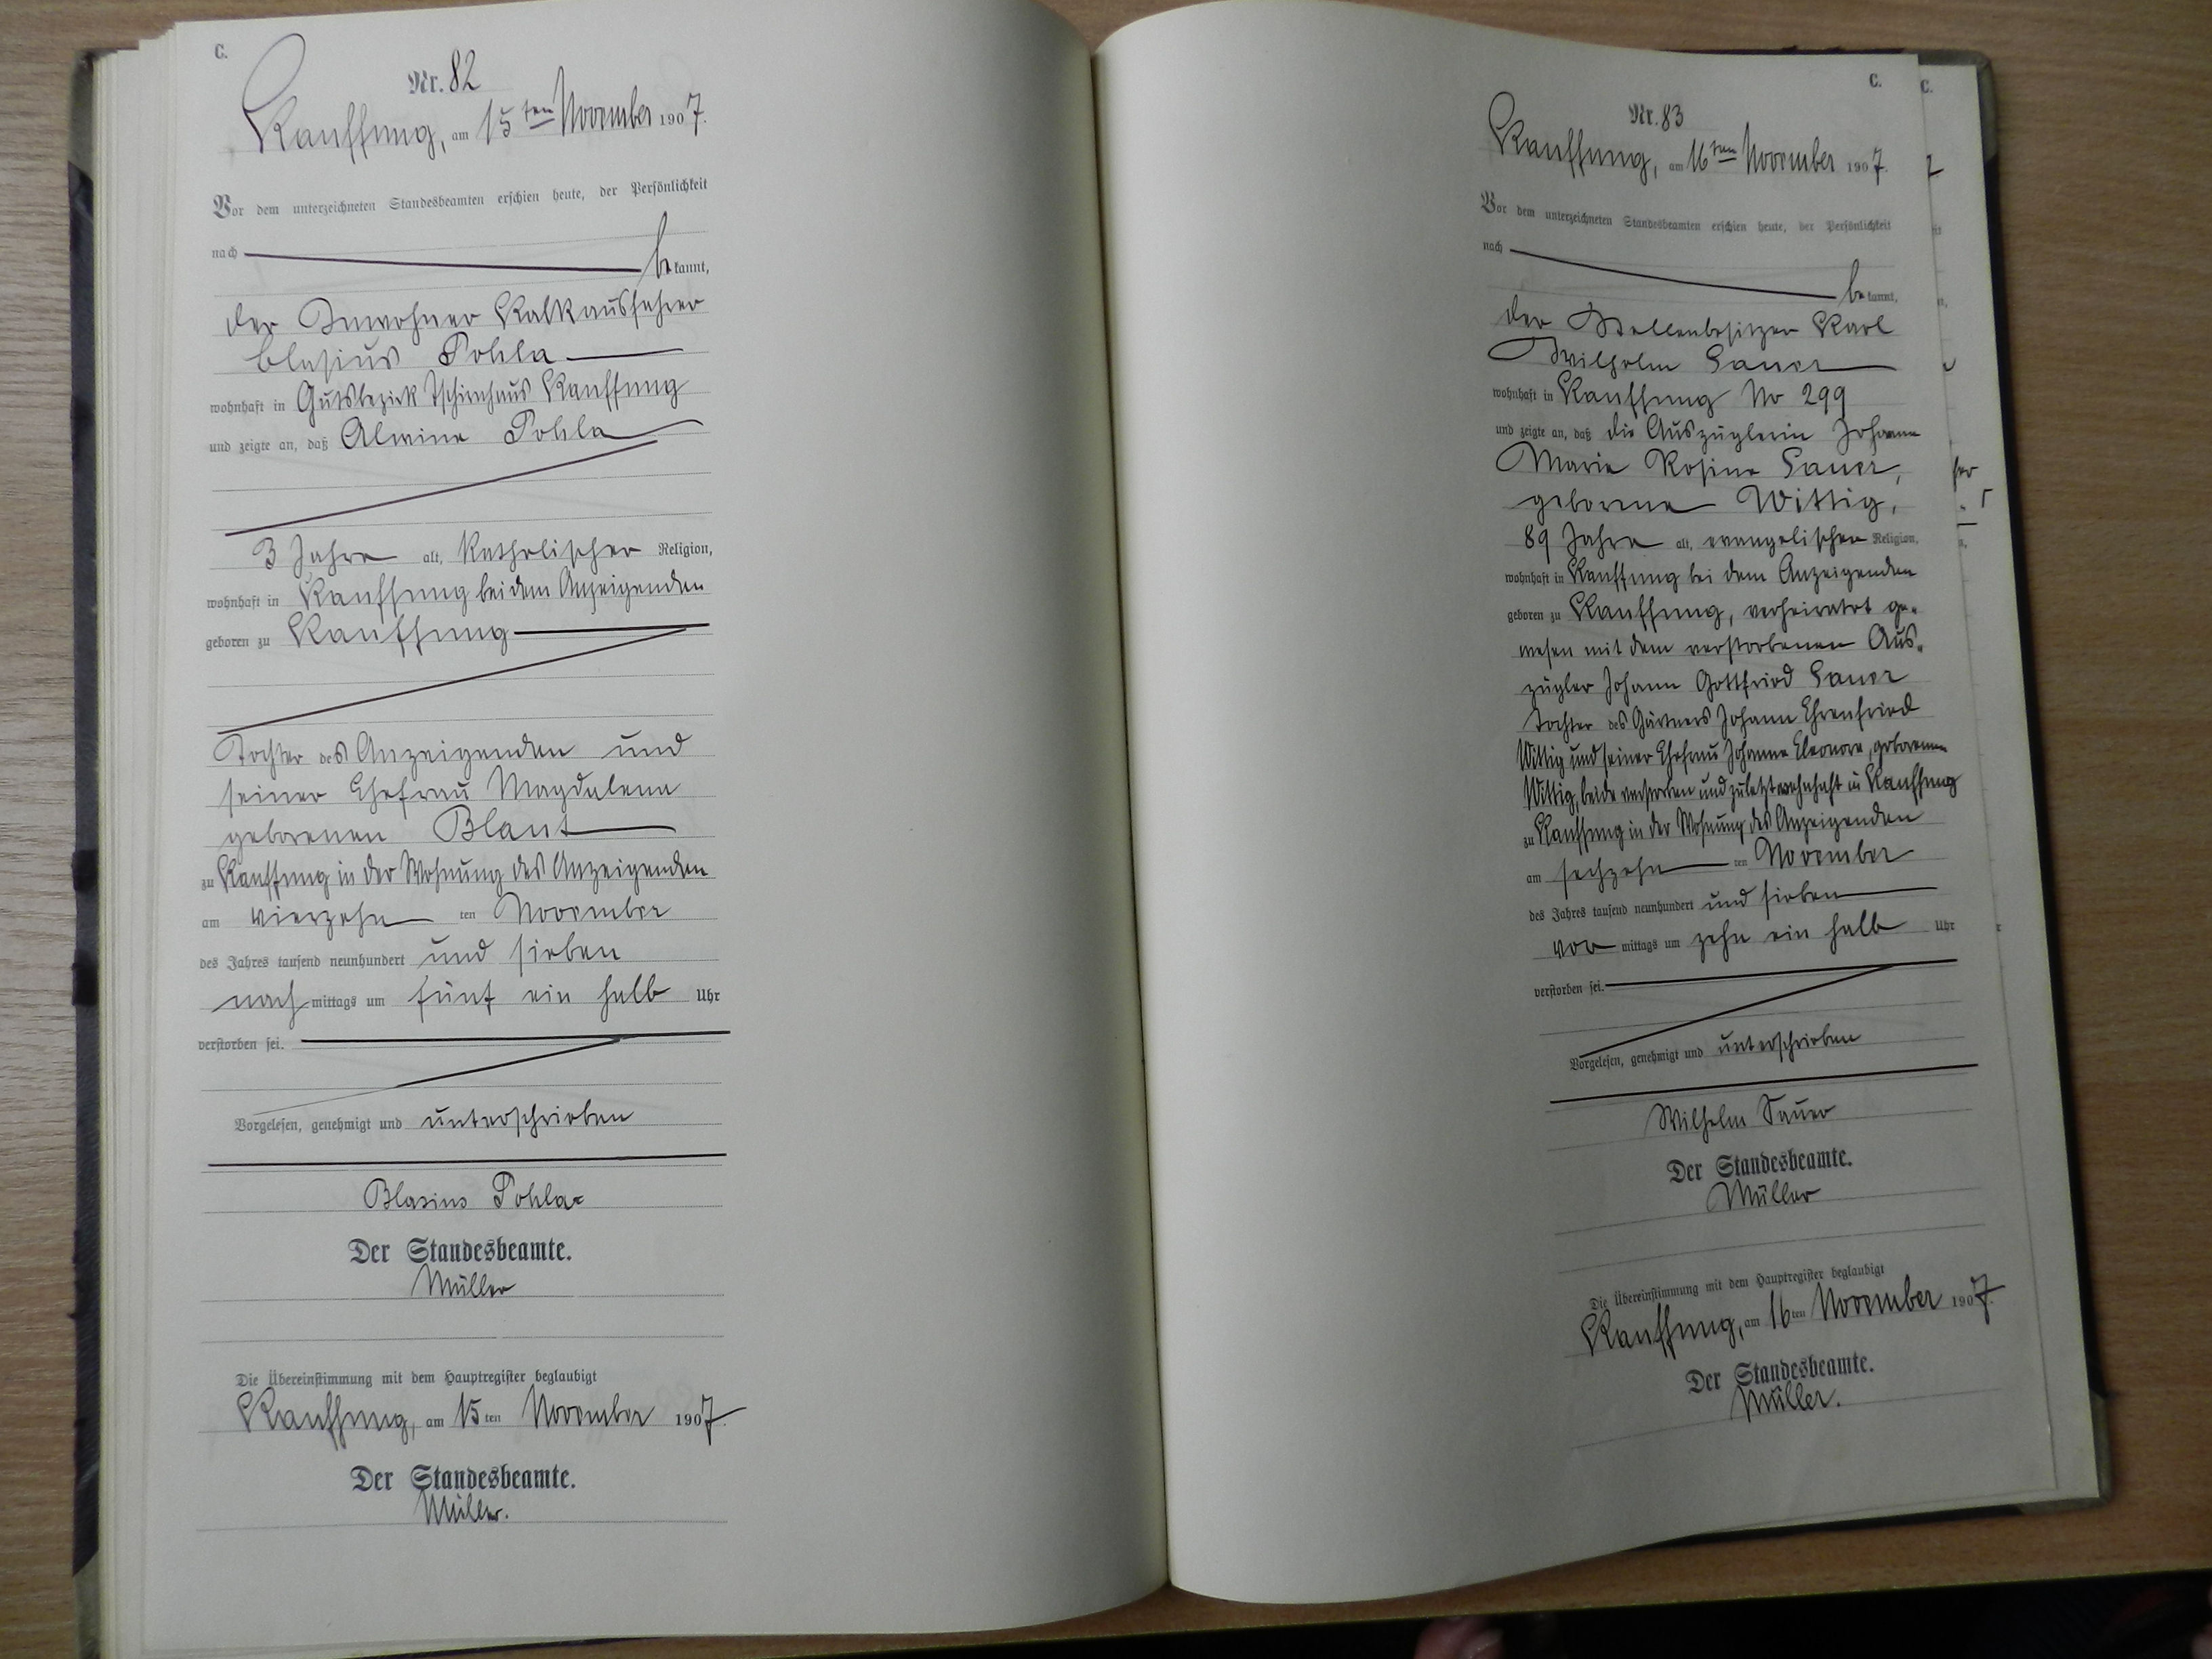 C.
Nr. 82
Kauffung, am 15ten November 1907.
Vor dem unterzeichneten Standesbeamten erschien heute, der Persönlichkeit
nach bekannt,
der Inwohner Kalkausfahrer
Blasius Pohla
wohnhaft in Gutsbezirk Tschirnhaus Kauffung
und zeigte an, daß Alwine Pohla
3 Jahre alt, katholischer Religion,
wohnhaft in Kauffung bei dem Anzeigenden
geboren zu Kauffung
Tochter des Anzeigenden und
seiner Ehefrau Magdalena
geborenen Blant
zu Kauffung in der Wohnung des Anzeigenden
am vierzehn ten November
des Jahres tausend neunhundert und sieben
nach mittags um fünf ein halb Uhr
verstorben sei.
Vorgelesen, genehmigt und unterschrieben
Blasius Pohla
Der Standesbeamte.
Müller
Die Übereinstimmung mit dem Hauptregister beglaubigt
Kauffung, am 15ten November 1907.
Der Standesbeamte.
Müller.
C.
C.
Nr. 83
Kauffung, am 16ten November 1907.
Vor dem unterzeichneten Standesbeamten erschien heute, der Persönlichkeit
nach bekannt,
der Stellenbesitzer Karl
Wilhelm Sauer
wohnhaft in Kauffung No 299
und zeigte an, daß die Auszüglerin Johanne
Marie Rosine Sauer,
geborene Wittig,
89 Jahre alt, evangelischer Religion,
wohnhaft in Kauffung bei dem Anzeigenden
geboren zu Kauffung, verheiratet ge-
wesen mit dem verstorbenen Aus-
zügler Johann Gottfried Sauer
Tochter des Gärtners Johann Ehrenfried
Wittig und seiner Ehefrau Johanne Eleonore, geborenen
Wittig, beide verstorben und zuletzt wohnhaft in Kauffung
zu Kauffung in der Wohnung des Anzeigenden
am sechzehn ten November
des Jahres tausend neunhundert und sieben
vor mittags um zehn ein halb Uhr
verstorben sei.
Vorgelesen, genehmigt und unterschrieben
Wilhelm Sauer
Der Standesbeamte.
Müller
Die Übereinstimmung mit dem Hauptregister beglaubigt
Kauffung, am 16ten November 1907.
Der Standesbeamte.
Müller.